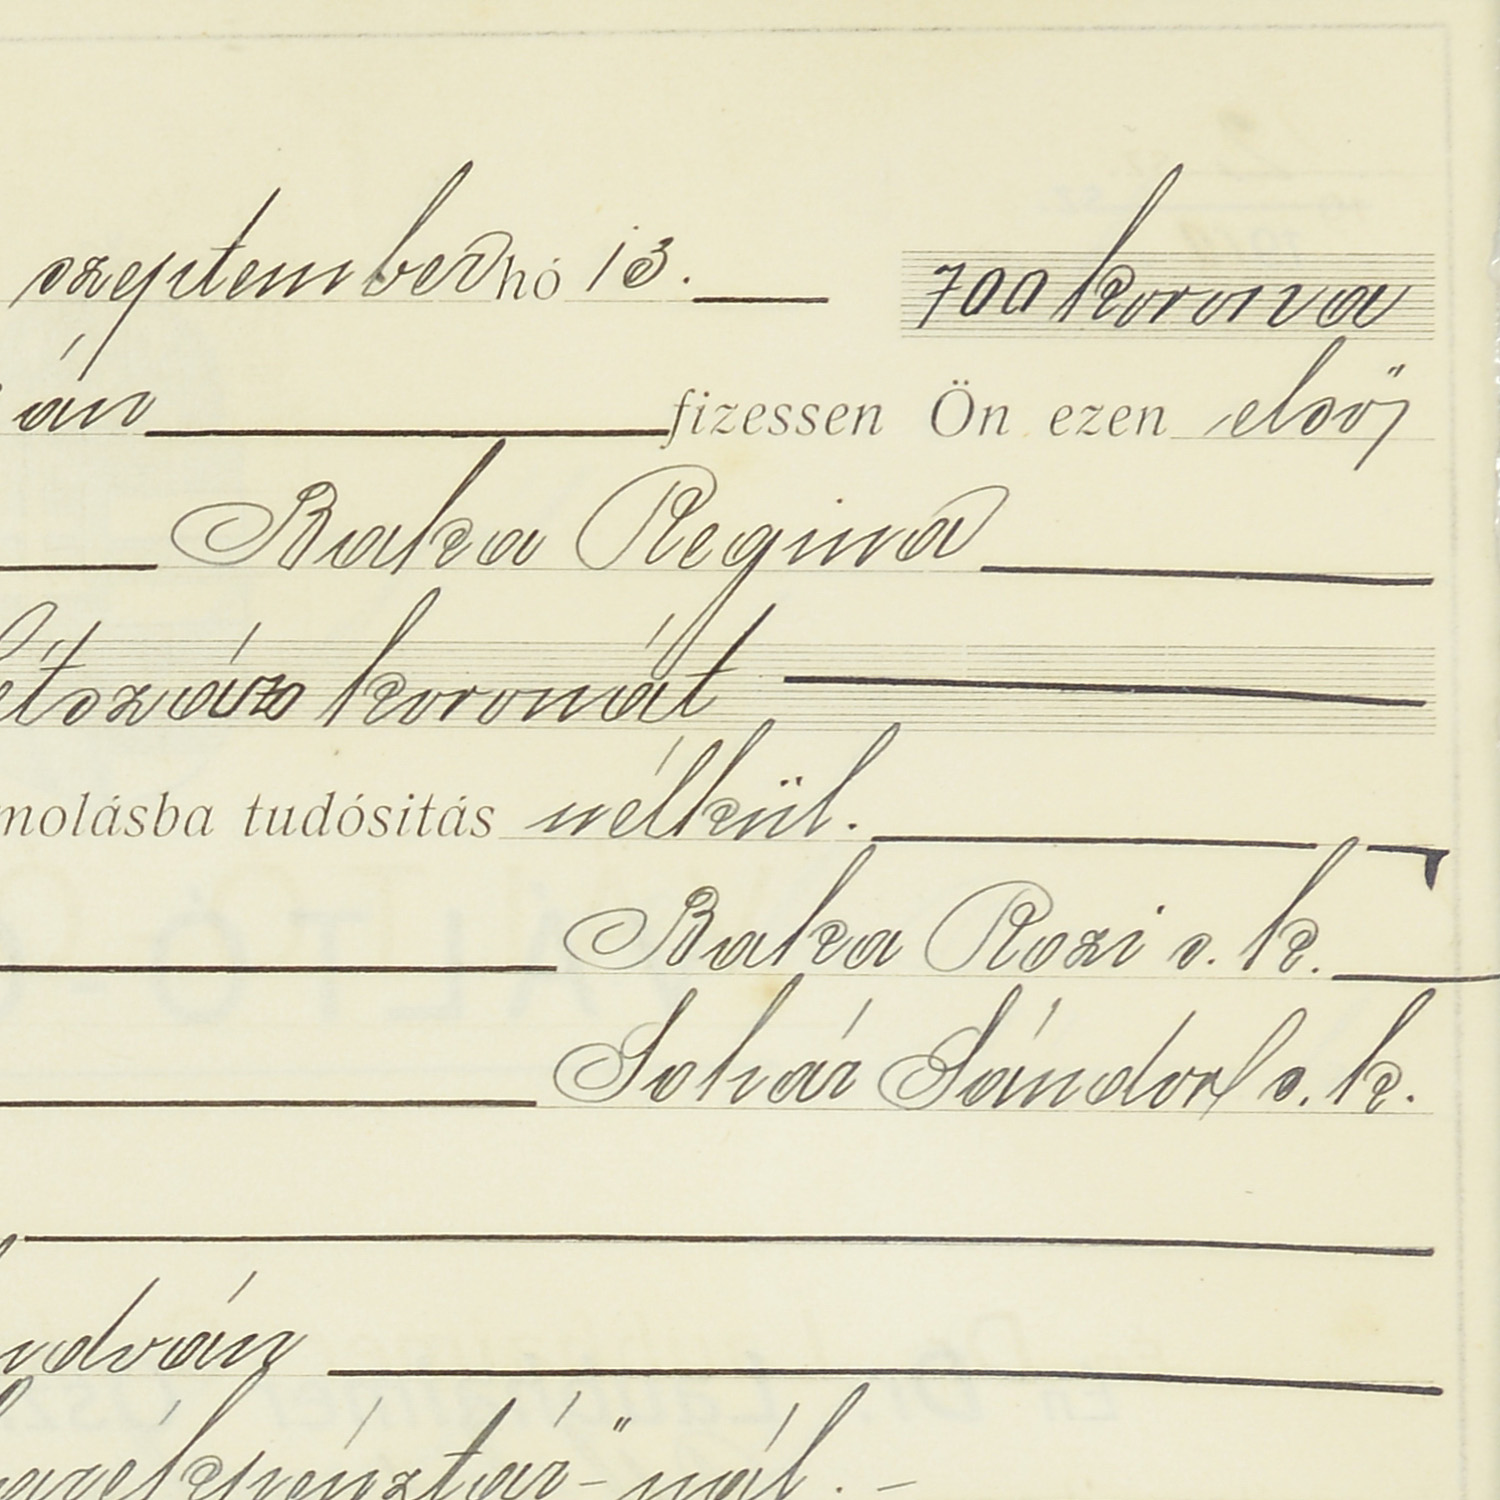 szeptember hó 13. 700 korona
án fizessen Ön ezen első
Baka Regina
étszázo koronát
molásba tudósitás nélkül.
Baka Rozi s. k.
Sohár Sándor s. k.
ndván
arekpénztár"-nál. -